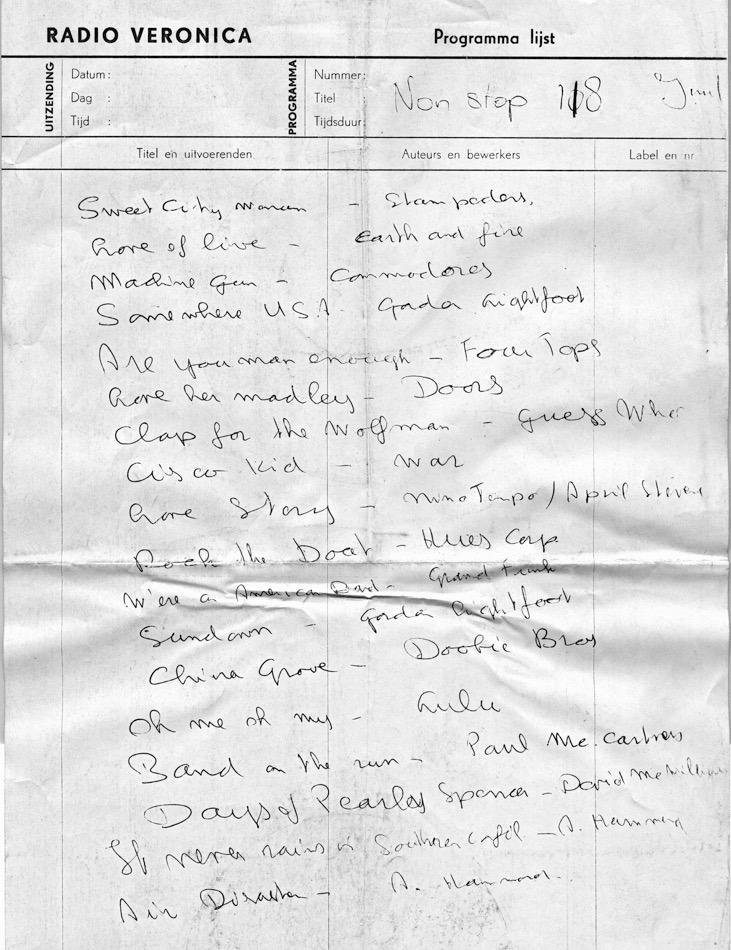 RADIO VERONICA Programma lijst
UITZENDING
Datum :
Dag :
Tijd :
PROGRAMMA
Nummer:
Titel :
Tijdsduur:
Non stop 118
Titel en uitvoerenden Auteurs en bewerkers Label en nr
Sweet City woman - Stampeders,
Love of live - Earth and fire
Machine Gun - Commodores
Somewhere U.S.A. Gordon Lightfoot
Are you man enough - Four Tops
Love her madley - Doors
Clap for the Wolfman - Guess Who
Cisco Kid - War
Love Story - Nino Tempo / April Stevens
Rock the Boat - Hues Corp
W'ere an American Band - Grand Funk
Sundown - Gordon Lightfoot
China Grove - Doobie Bros
Oh me oh my - Lulu
Band on the run - Paul Mc. Cartney
Days of Pearly Spencer - David McWilliams
It never rains in Southern Calif - A. Hammond
Air Disaster - A. Hammond.